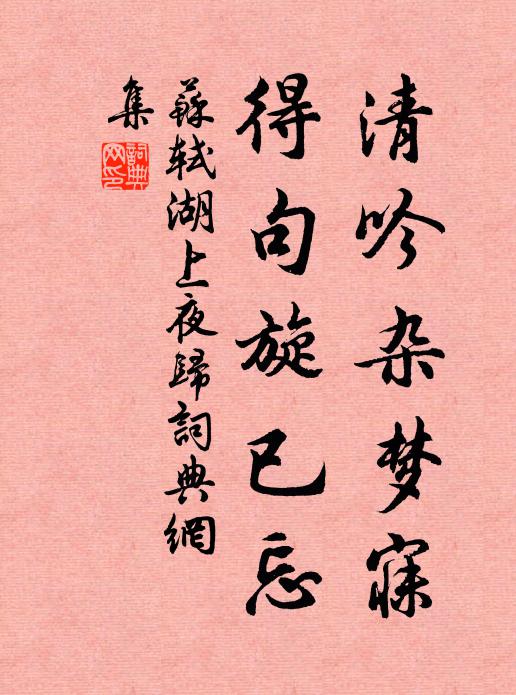 清吟杂梦寐
得句旋已忘
蘇軾湖上夜歸詞典網
集
詞典
网印